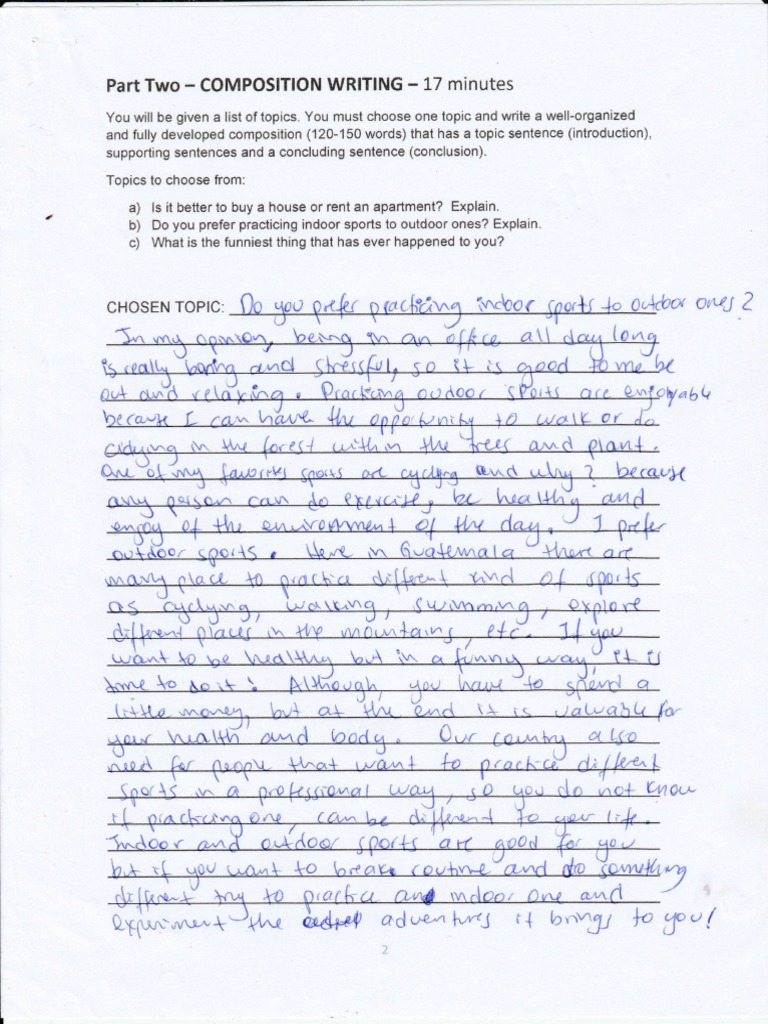 Part Two – COMPOSITION WRITING – 17 minutes
You will be given a list of topics. You must choose one topic and write a well-organized
and fully developed composition (120-150 words) that has a topic sentence (introduction),
supporting sentences and a concluding sentence (conclusion).
Topics to choose from:
a) Is it better to buy a house or rent an apartment? Explain.
b) Do you prefer practicing indoor sports to outdoor ones? Explain.
c) What is the funniest thing that has ever happened to you?
CHOSEN TOPIC: Do you prefer practicing indoor sports to outdoor ones?
In my opinion, being in an office all day long
is really boring and stressful, so it is good to me be
out and relaxing. Practicing oudoor sports are enjoyable
because I can have the opportunity to walk or do
cidying in the forest within the trees and plant.
One of my favorites sports are cyclying and why? because
any person can do exercise, be healthy and
engoy of the environment of the day. I prefer
outdoor sports. Here in Guatemala there are
many place to practice different kind of sports
as cyclying, walking, swimming, explore
different places in the mountains, etc. If you
want to be healthy but in a funny way, it is
time to do it! Although, you have to spend a
little money, but at the end it is valuable for
your health and body. Our country also
need for people that want to practice different
sports in a professional way, so you do not know
if practicing one, can be different to your life.
Indoor and outdoor sports are good for you
but if you want to break routine and do something
different try to practice an indoor one and
experiment the adventures it brings to you!
2